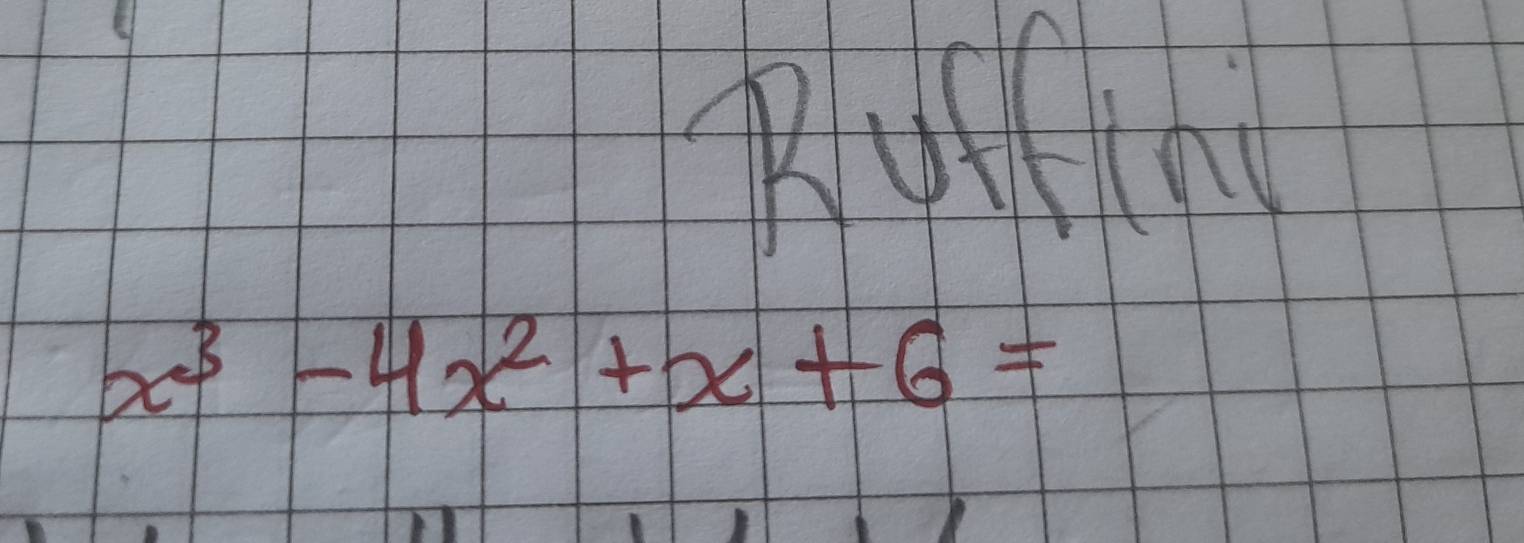 Ruffini
x³ - 4x² + x + 6 =